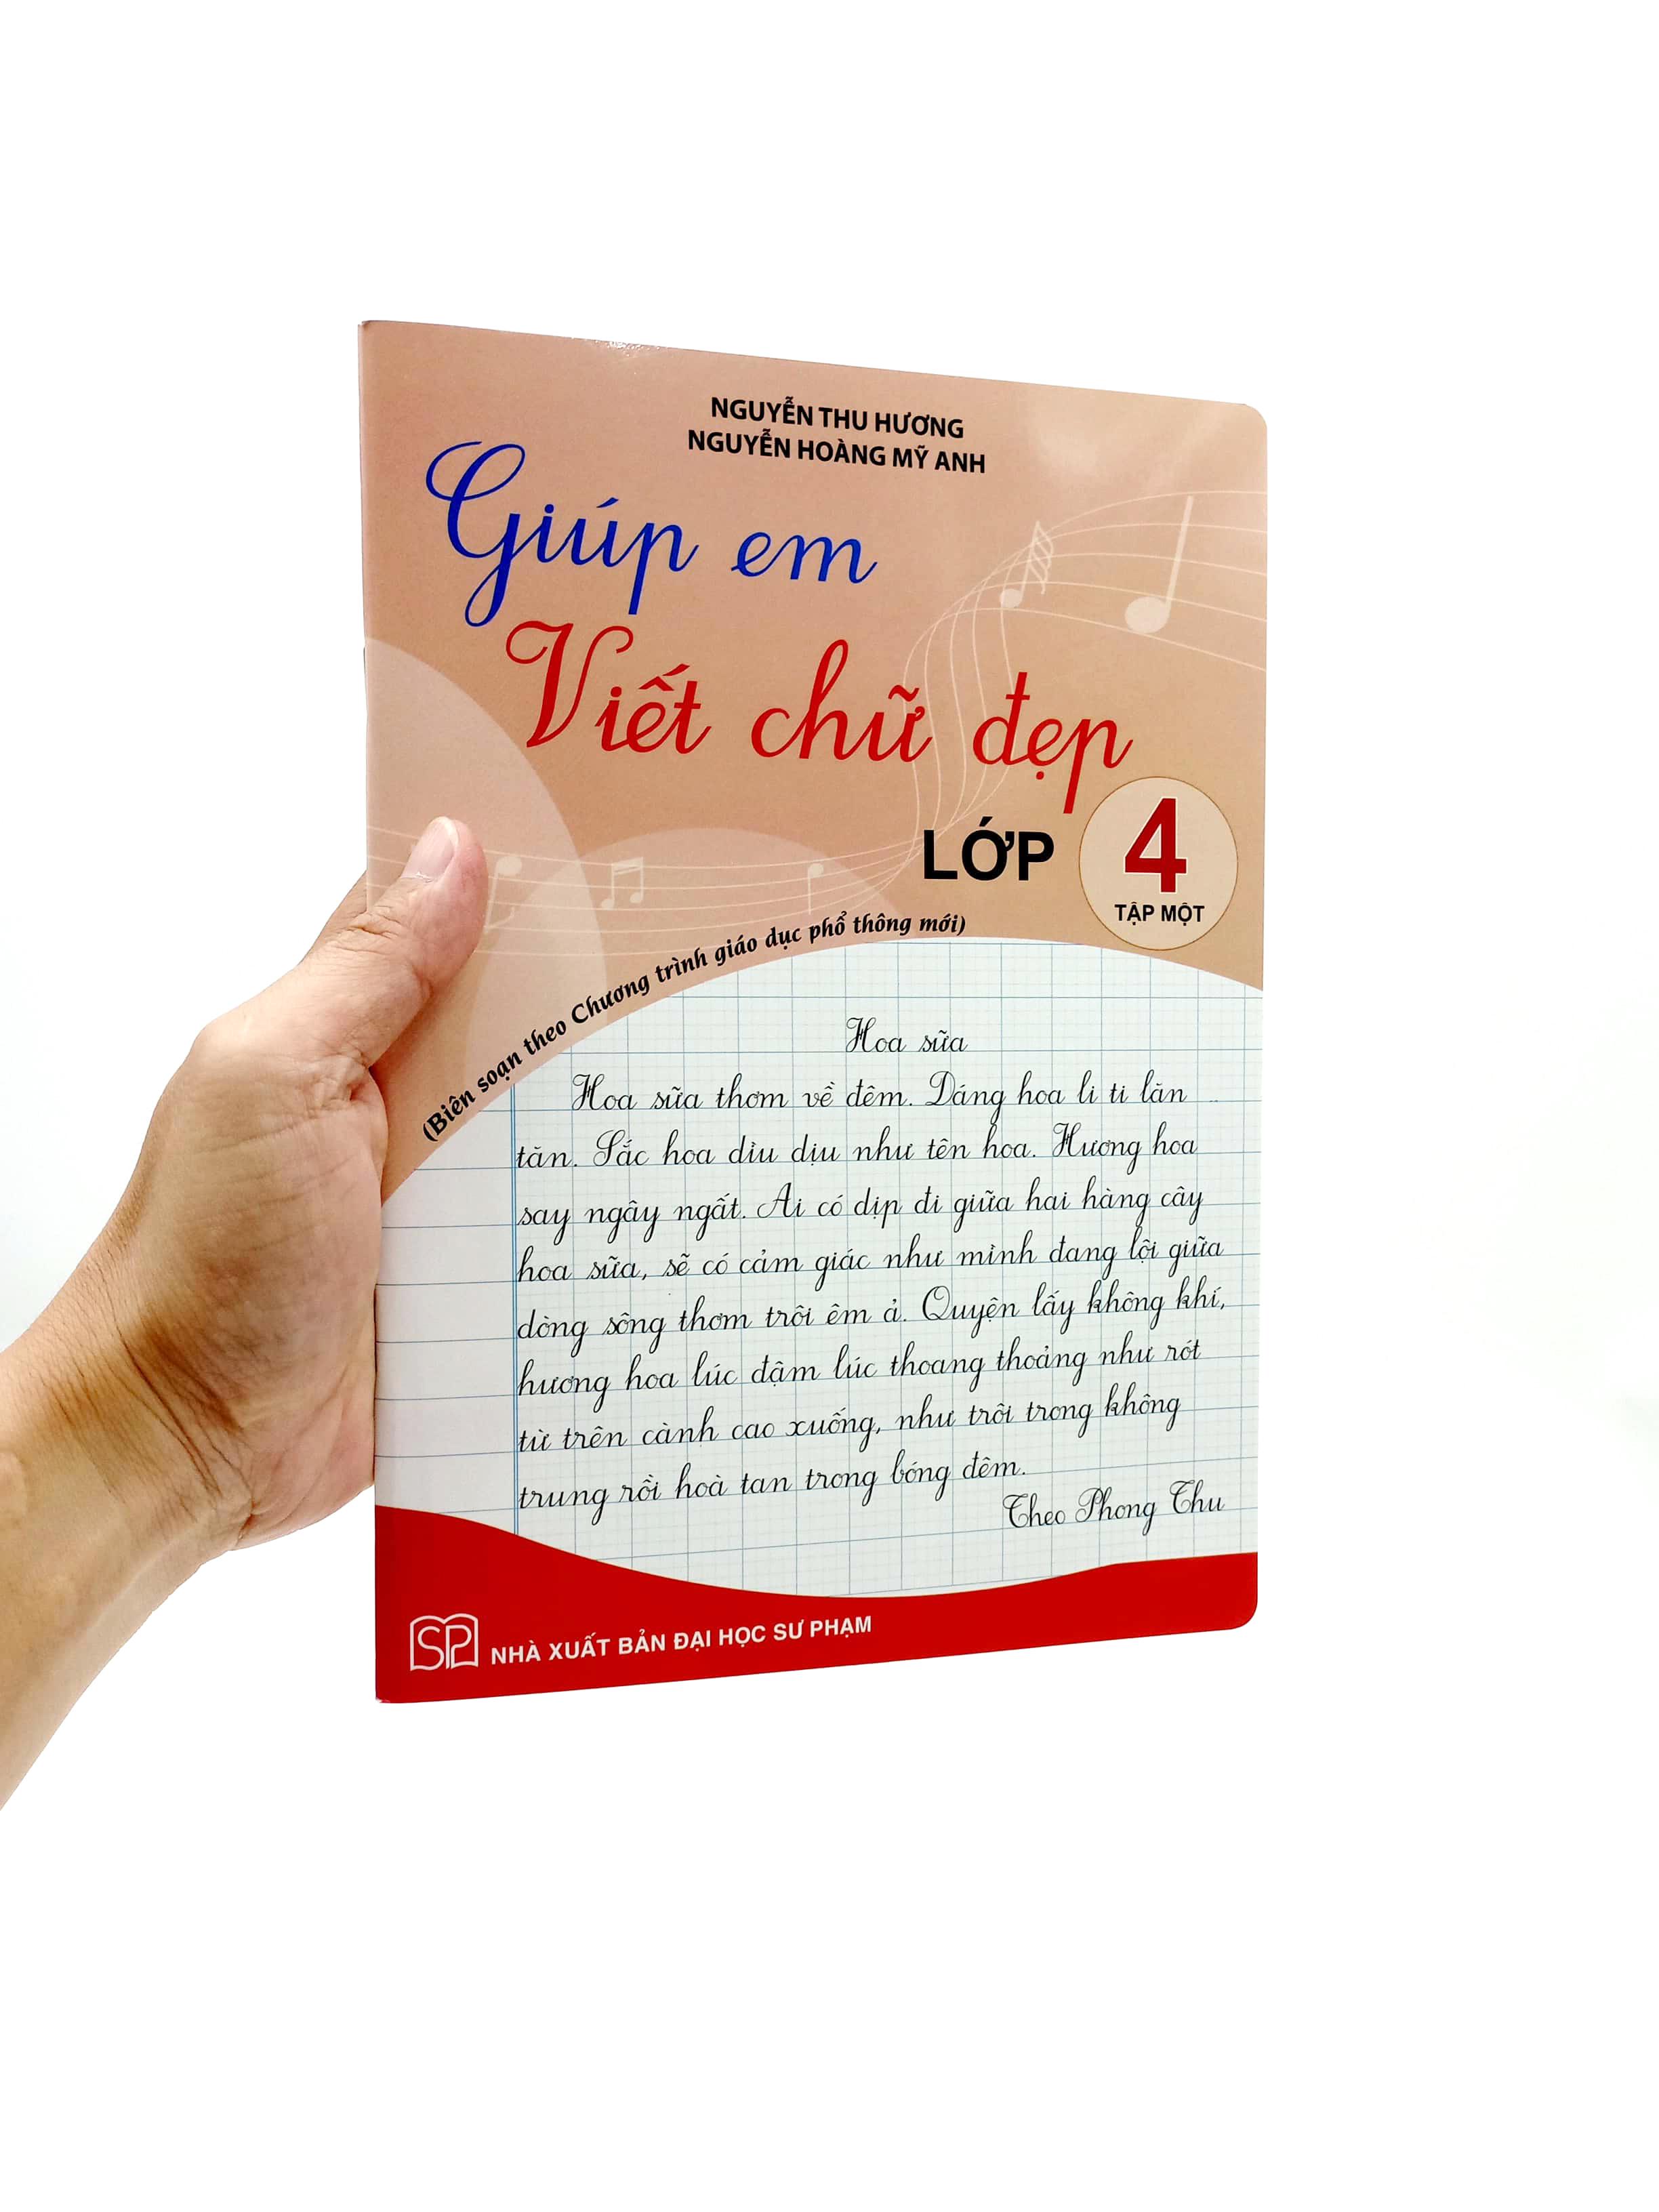 NGUYỄN THU HƯƠNG
NGUYỄN HOÀNG MỸ ANH
Giúp em
Viết chữ đẹp
LỚP 4
TẬP MỘT
(Biên soạn theo Chương trình giáo dục phổ thông mới)
Hoa sữa
Hoa sữa thơm về đêm. Dáng hoa li ti lăn
tăn. Sắc hoa dìu dịu như tên hoa. Hương hoa
say ngây ngất. Ai có dịp đi giữa hai hàng cây
hoa sữa, sẽ có cảm giác như mình đang lội giữa
dòng sông thơm trôi êm ả. Quyện lấy không khí,
hương hoa lúc đậm lúc thoang thoảng như rót
từ trên cành cao xuống, như trôi trong không
trung rồi hoà tan trong bóng đêm.
Theo Phong Thu
SP NHÀ XUẤT BẢN ĐẠI HỌC SƯ PHẠM